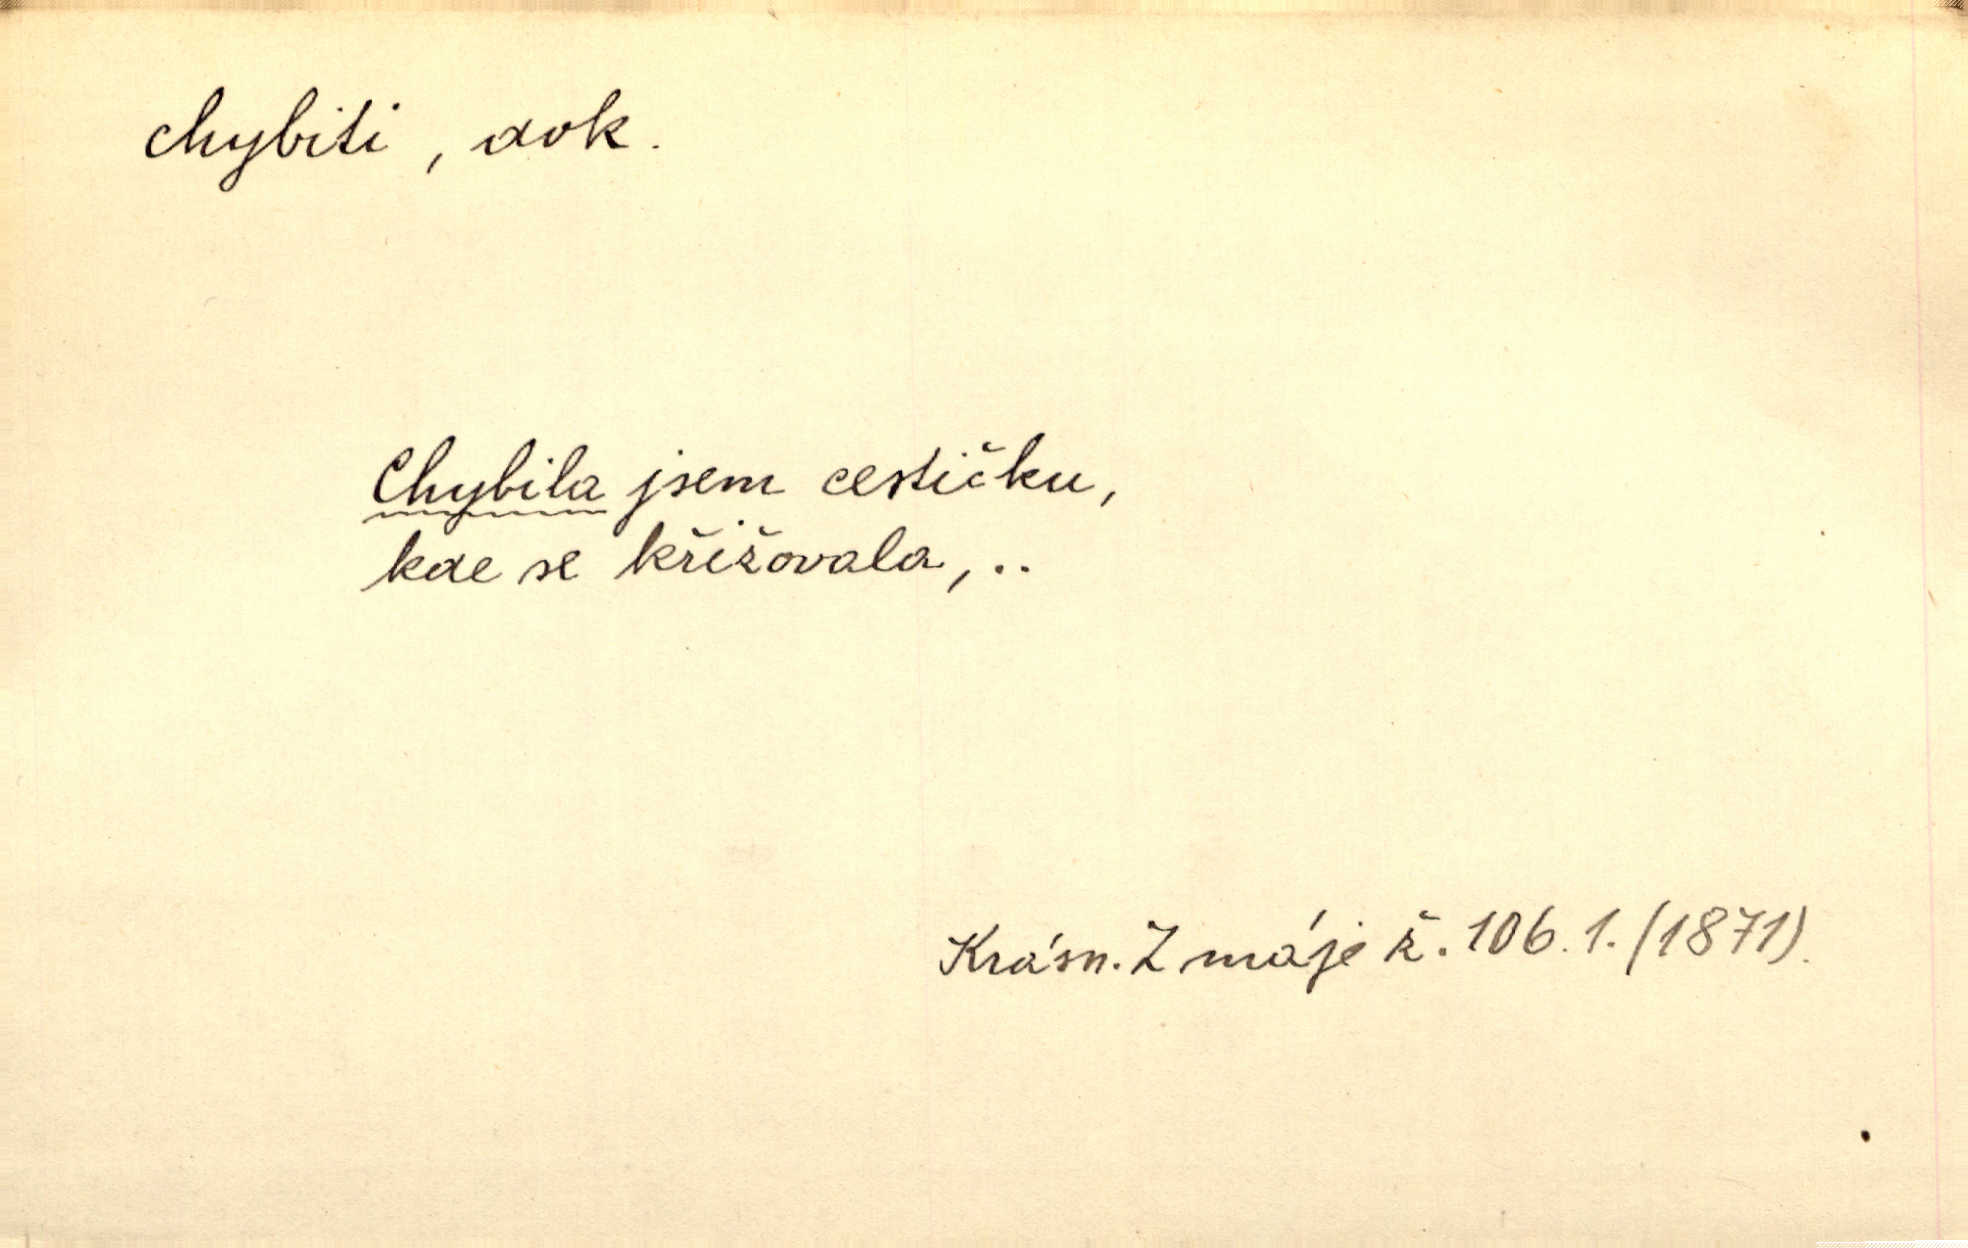 chybiti, dok.
Chybila jsem cestičku,
kde se křižovala,..
Krásn. Z máje ž. 106.1.(1871).